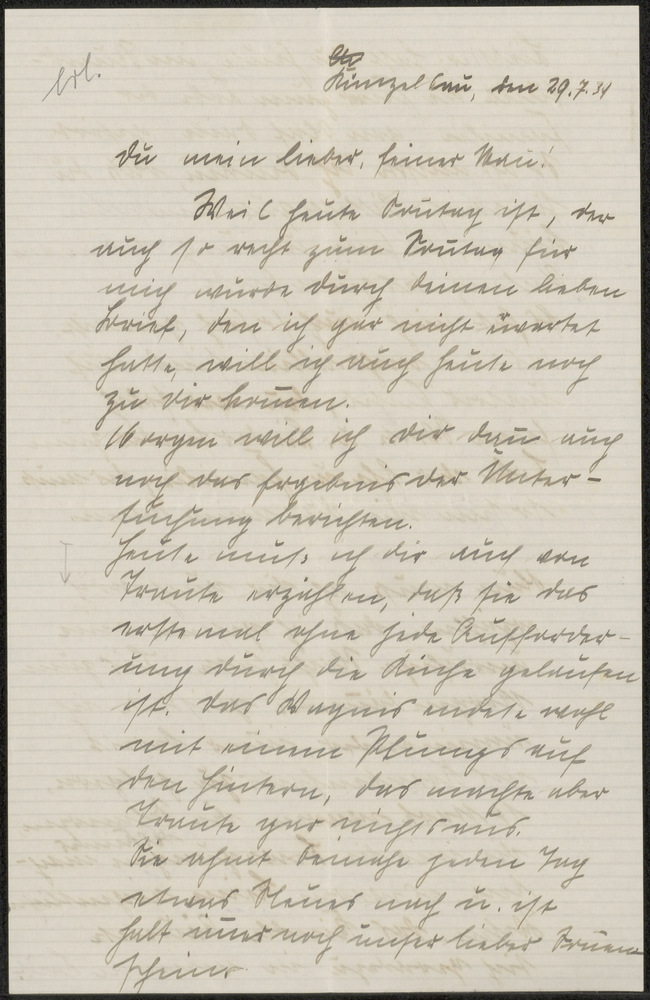 erl.
Künzelsau, den 29.7.34
Du mein lieber, feiner Mann!
Weil heute Sonntag ist, der
auch so recht zum Sonntag für
mich wurde durch deinen lieben
Brief, den ich gar nicht erwartet
hatte, will ich auch heute noch
zu dir kommen.
Morgen will ich dir dann auch
noch das Ergebnis der Unter-
suchung berichten.
Heute muß ich dir auch von
Traute erzählen, daß sie das
erstemal ohne jede Aufforder-
ung durch die Küche gelaufen
ist. Das Wagnis endete wohl
mit einem Plumps auf
den Hintern, das machte aber
Traute gar nichts aus.
Sie ahmt beinahe jeden Tag
etwas Neues nach u. ist
halt immer noch unser lieber Sonnen-
schein.